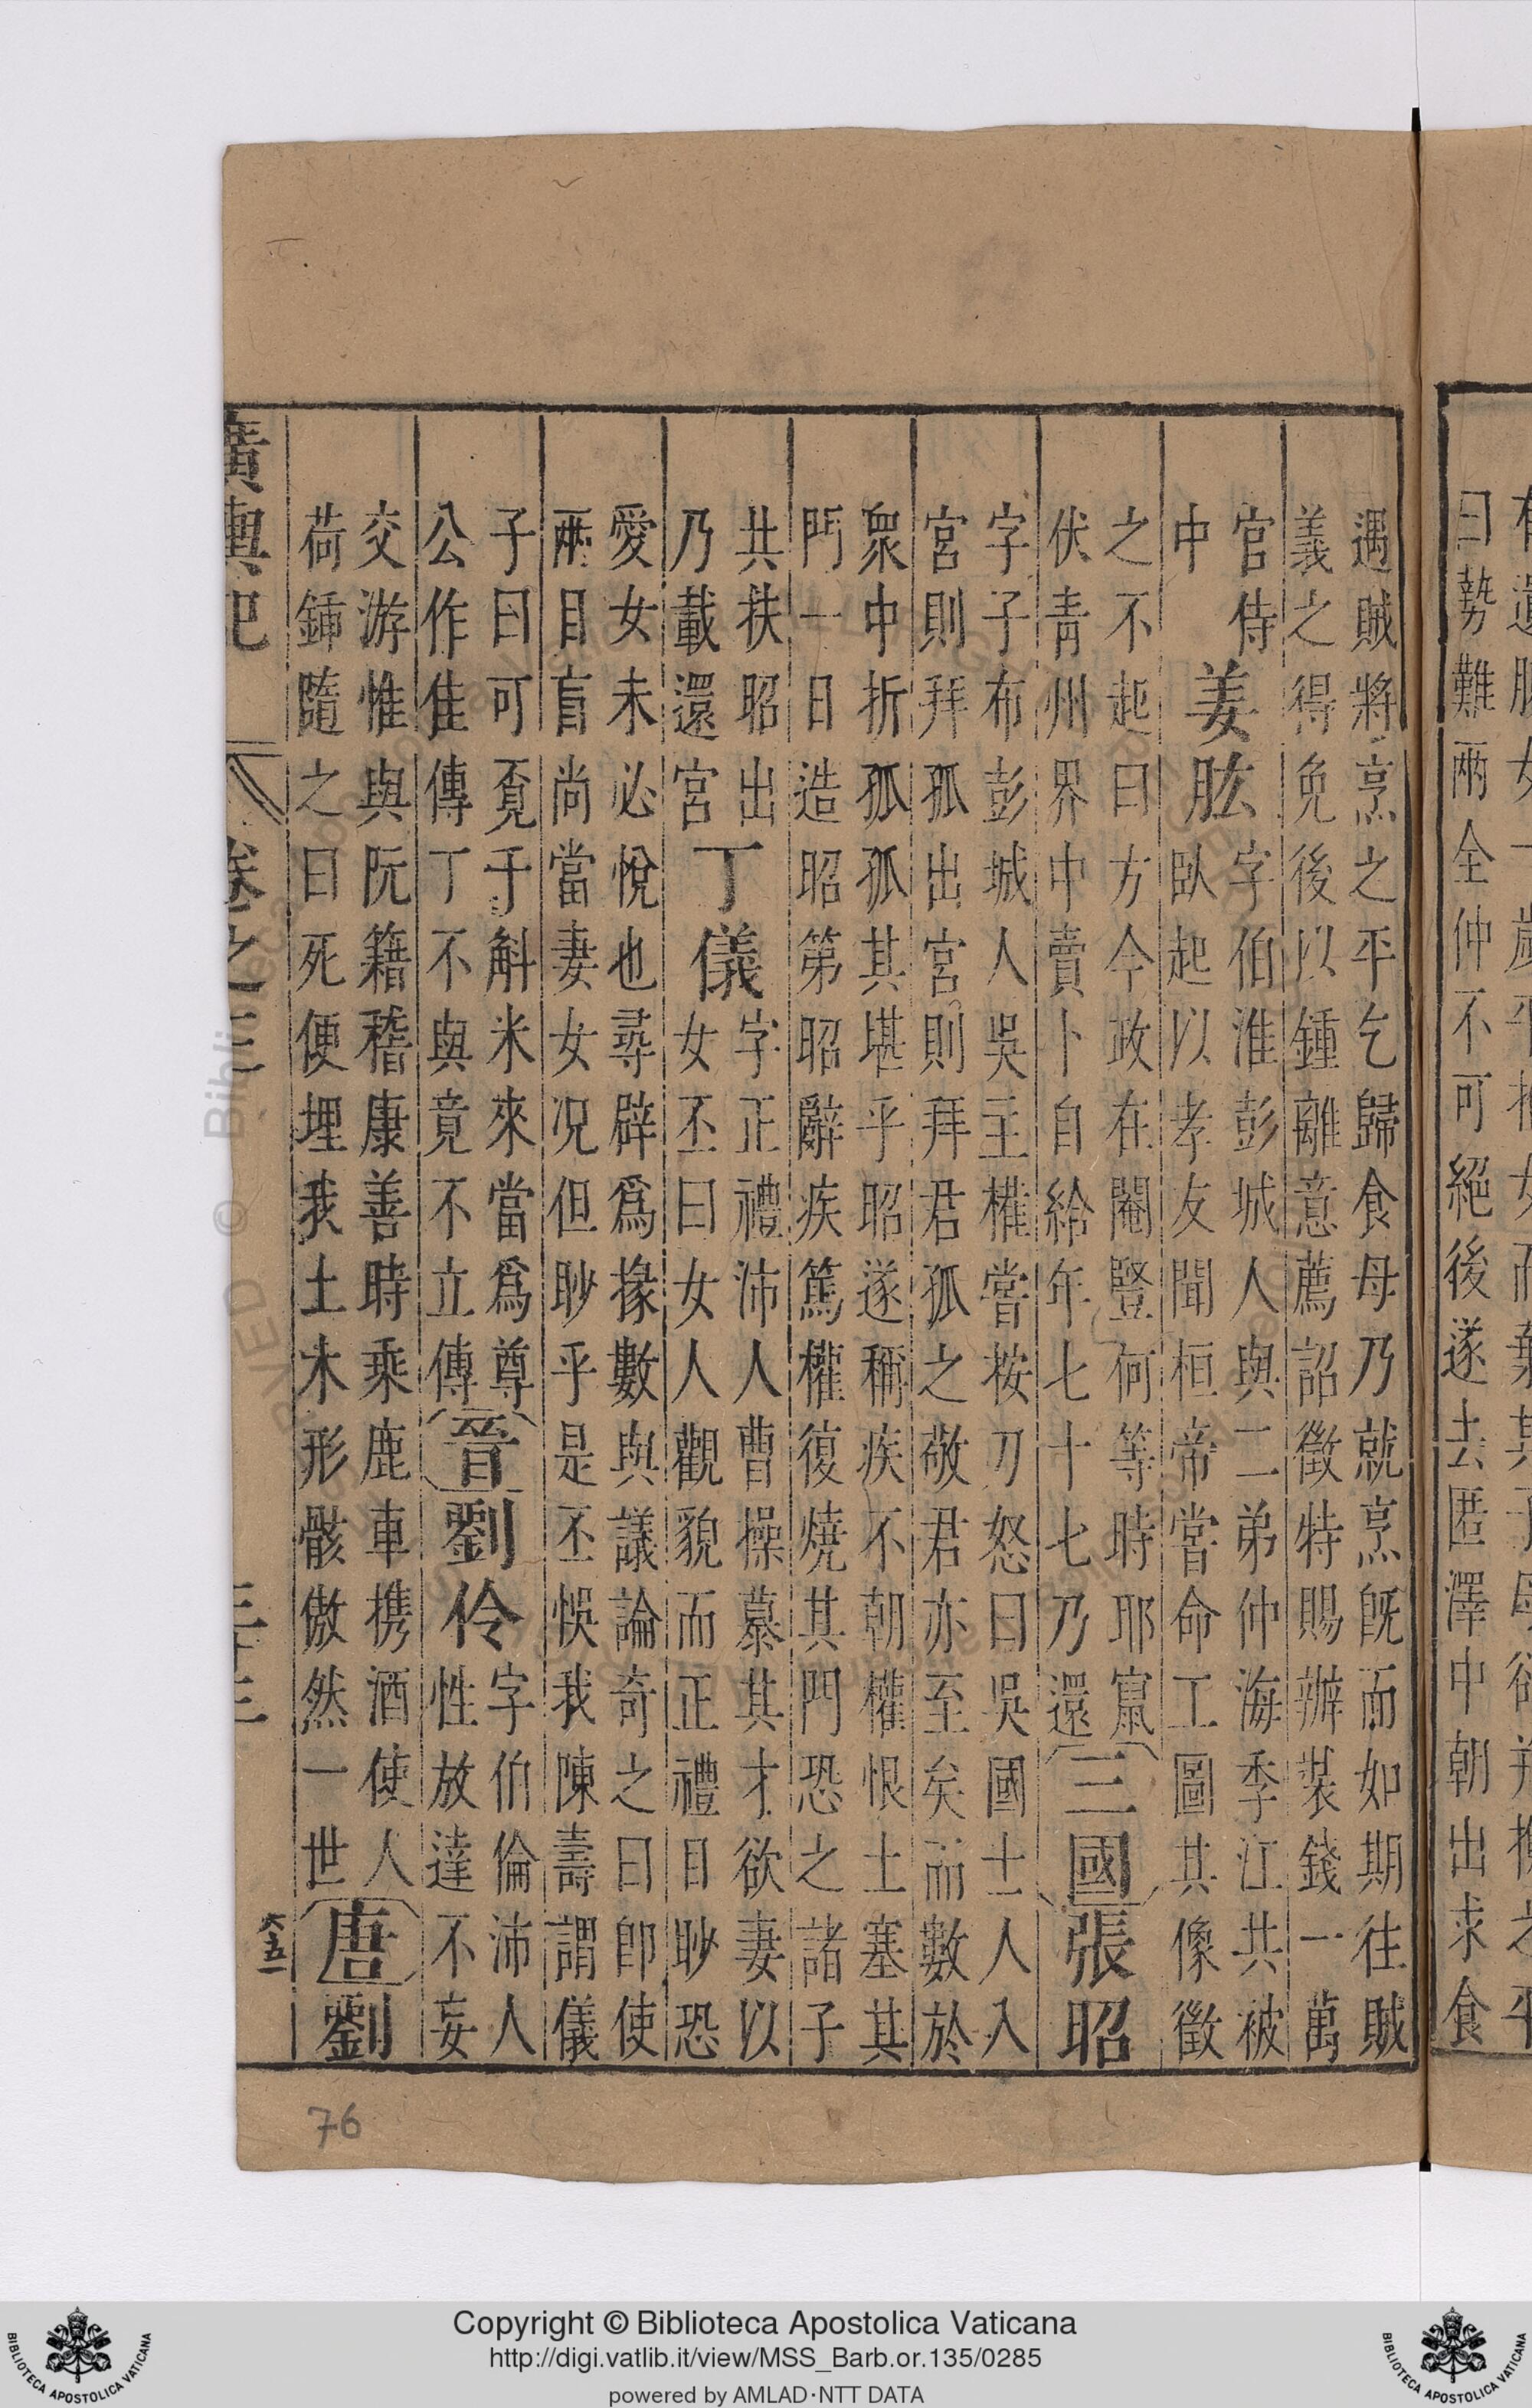 曰勢難兩全仲不可絕後遂去匿澤中朝出求食
遇賊將烹之平乞歸食母乃就烹旣而如期往賊
義之得免後以鍾離意薦詔徵特賜辦裝錢一萬
官侍
中
姜肱
字伯淮彭城人與二弟仲海季江共被
臥起以孝友聞桓帝嘗命工圖其像徵
之不起曰方今政在閹豎何等時耶竄
伏靑州界中賣卜自給年七十七乃還
三國
張昭
字子布彭城人吳主權嘗按刀怒曰吳國士人入
宮則拜孤出宮則拜君孤之敬君亦至矣而數於
衆中折孤孤其堪乎昭遂稱疾不朝權恨土塞其
門一日造昭第昭辭疾篤權復燒其門恐之諸子
共扶昭出
乃載還宮
丁儀
字正禮沛人曹操慕其才欲妻以
女丕曰女人觀貌而正禮目眇恐
愛女未必悅也尋辟爲掾數與議論奇之曰卽使
兩目盲尚當妻女况但眇乎是丕悞我陳壽謂儀
子曰可覔于斛米來當爲尊
公作佳傳丁不與竟不立傳
晉
劉伶
字伯倫沛人
性放達不妄
交游惟與阮籍嵇康善時乘鹿車携酒使人
荷鍤隨之曰死便埋我土木形骸傲然一世
唐
劉
廣輿記
卷之三
三十三
大五一
76
Copyright © Biblioteca Apostolica Vaticana
http://digi.vatlib.it/view/MSS_Barb.or.135/0285
powered by AMLAD·NTT DATA
BIBLIOTECA APOSTOLICA VATICANA
BIBLIOTECA APOSTOLICA VATICANA